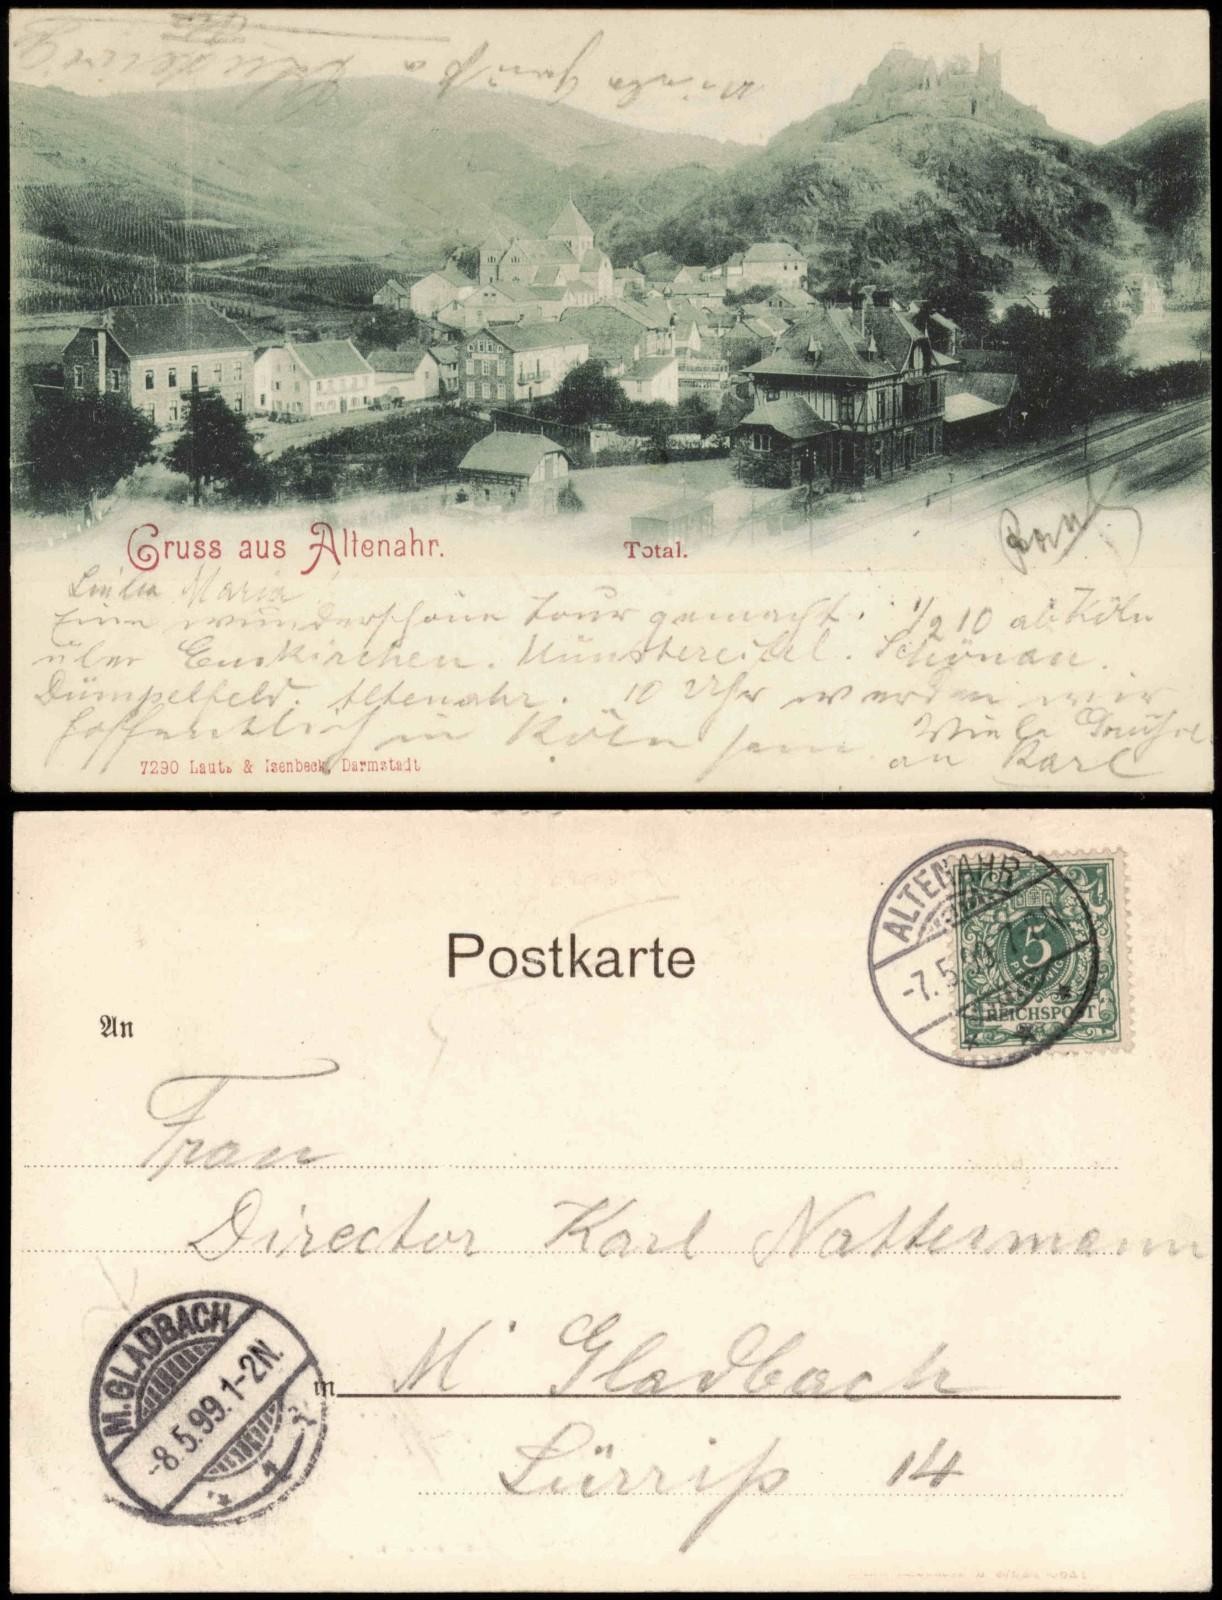 Viele Grüße
Gruss aus Altenahr.
Total.
Liebe Maria
Eine wunderschöne Tour gemacht. 1/2 10 ab Köln
über Euskirchen. Münstereifel. Schönau.
Dümpelfeld. Altenahr. 10 Uhr werden wir
hoffentlich in Köln sein. Viele Grüße
an Karl
7290 Lautz & Isenbeck, Darmstadt
Postkarte
ALTENAHR
-7.5.99. 7-8N
5
PFENNIG
REICHSPOST
An
Frau
Director Karl Nattermann
M. GLADBACH
-8.5.99. 1-2N.
1
in M. Gladbach
Lürrip 14